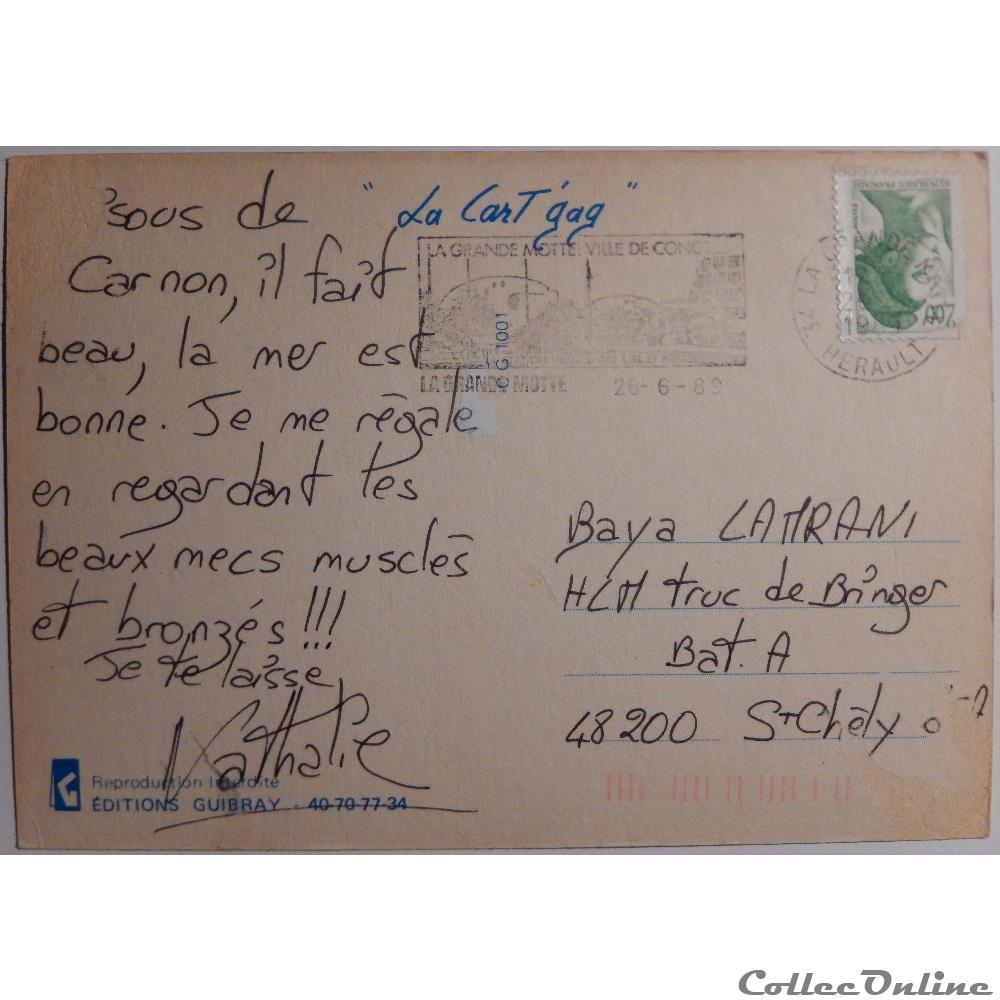 'sous de
Carnon, il fait
beau, la mer est
bonne. Je me régale
en regardant les
beaux mecs musclés
et bronzés !!!
Je te laisse,
Nathalie
" La CarT'gag "
LA GRANDE MOTTE: VILLE DE CONG
LA GRANDE MOTTE 26-6-89
C G 1001
REPUBLIQUE FRANÇAISE
34 LA GRANDE MOTTE
HERAULT
Baya LAMRANI
HLM truc de Bringer
Bat. A
48200 St Chély
Reproduction Interdite
ÉDITIONS GUIBRAY - 40-70-77-34
CollecOnline